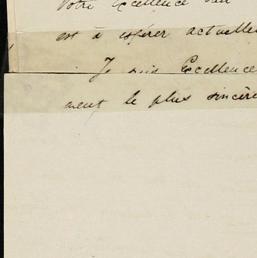 Votre Excellence
est à espérer actuelle
Je suis Excellence
ment le plus sincère